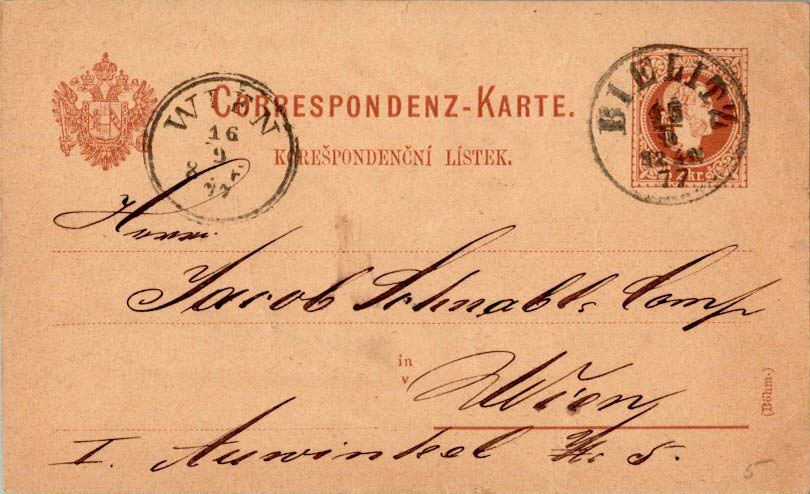 CORRESPONDENZ-KARTE.
KOREŠPONDENČNÍ LÍSTEK.
WIEN
16
9
8
BIELITZ
15
77
kr.
Herrn
Jacob Schnabl & Comp
in
v
Wien
I. Auwinkel Nr 5.
(Böhm.)
5